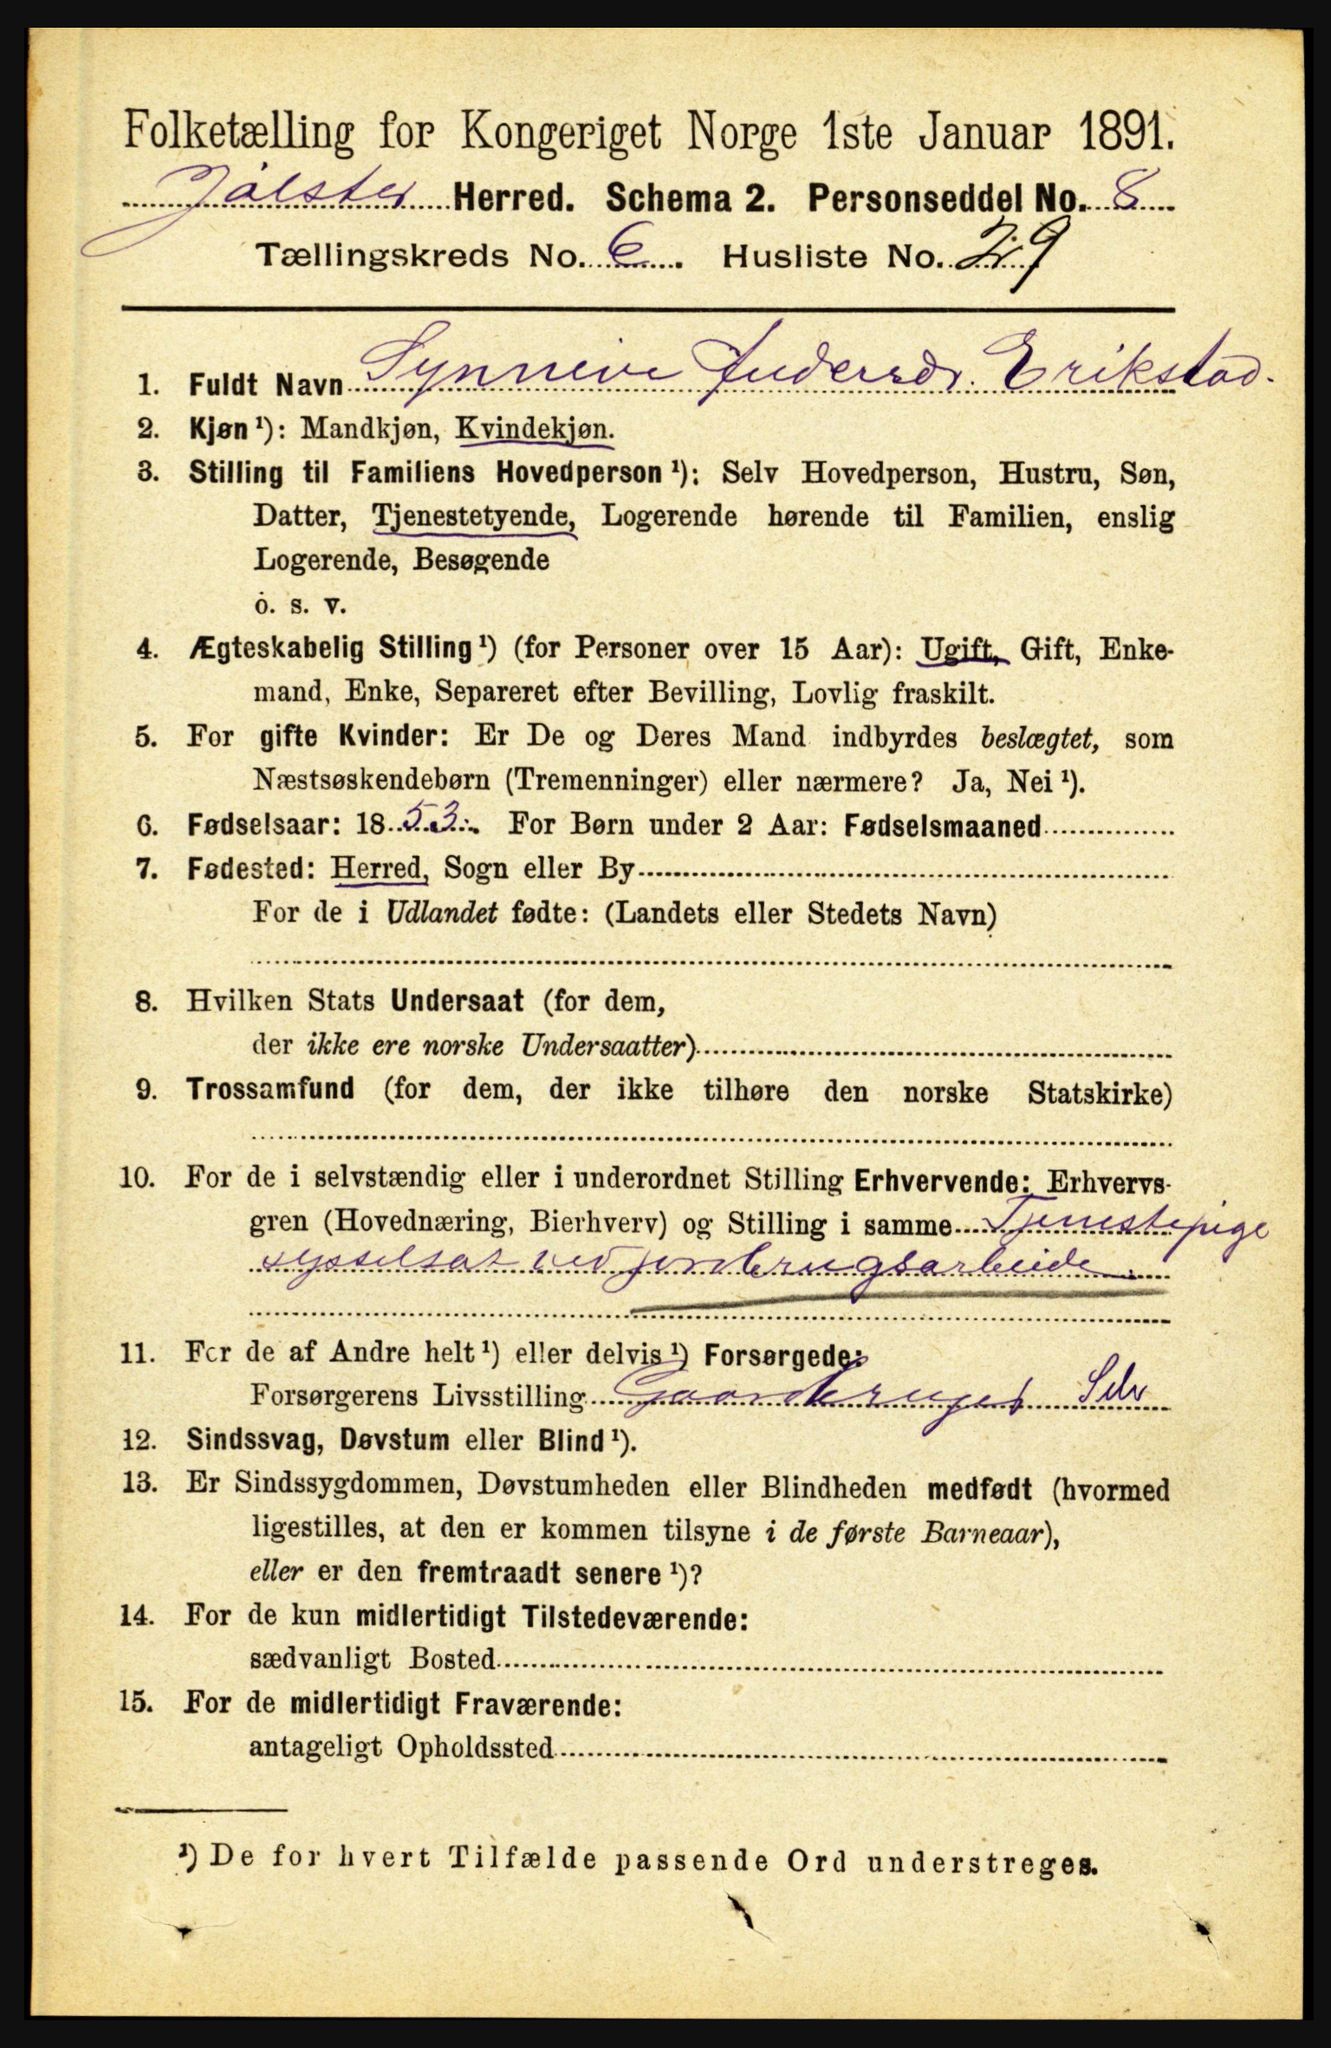 Folketælling for Kongeriget Norge 1ste Januar 1891.
Jølster Herred. Schema 2. Personseddel No. 8
Tællingskreds No. 6. Husliste No. 29
1. Fuldt Navn Synneve Andersdr. Erikstad.
2. Kjøn ¹): Mandkjøn, Kvindekjøn.
3. Stilling til Familiens Hovedperson ¹): Selv Hovedperson, Hustru, Søn,
Datter, Tjenestetyende, Logerende hørende til Familien, enslig
Logerende, Besøgende
o. s. v.
4. Ægteskabelig Stilling ¹) (for Personer over 15 Aar): Ugift, Gift, Enke-
mand, Enke, Separeret efter Bevilling, Lovlig fraskilt.
5. For gifte Kvinder: Er De og Deres Mand indbyrdes beslægtet, som
Næstsøskendebørn (Tremenninger) eller nærmere? Ja, Nei ¹).
6. Fødselsaar: 1853. For Børn under 2 Aar: Fødselsmaaned
7. Fødested: Herred, Sogn eller By
For de i Udlandet fødte: (Landets eller Stedets Navn)
8. Hvilken Stats Undersaat (for dem,
der ikke ere norske Undersaatter)
9. Trossamfund (for dem, der ikke tilhøre den norske Statskirke)
10. For de i selvstændig eller i underordnet Stilling Erhvervende: Erhvervs-
gren (Hovednæring, Bierhverv) og Stilling i samme Tjenestepige
sysselsat ved jordbrugsarbeide
11. For de af Andre helt ¹) eller delvis ¹) Forsørgede:
Forsørgerens Livsstilling Gaardbruger Selv
12. Sindssvag, Døvstum eller Blind ¹).
13. Er Sindssygdommen, Døvstumheden eller Blindheden medfødt (hvormed
ligestilles, at den er kommen tilsyne i de første Barneaar),
eller er den fremtraadt senere ¹)?
14. For de kun midlertidigt Tilstedeværende:
sædvanligt Bosted
15. For de midlertidigt Fraværende:
antageligt Opholdssted
¹) De for hvert Tilfælde passende Ord understreges.